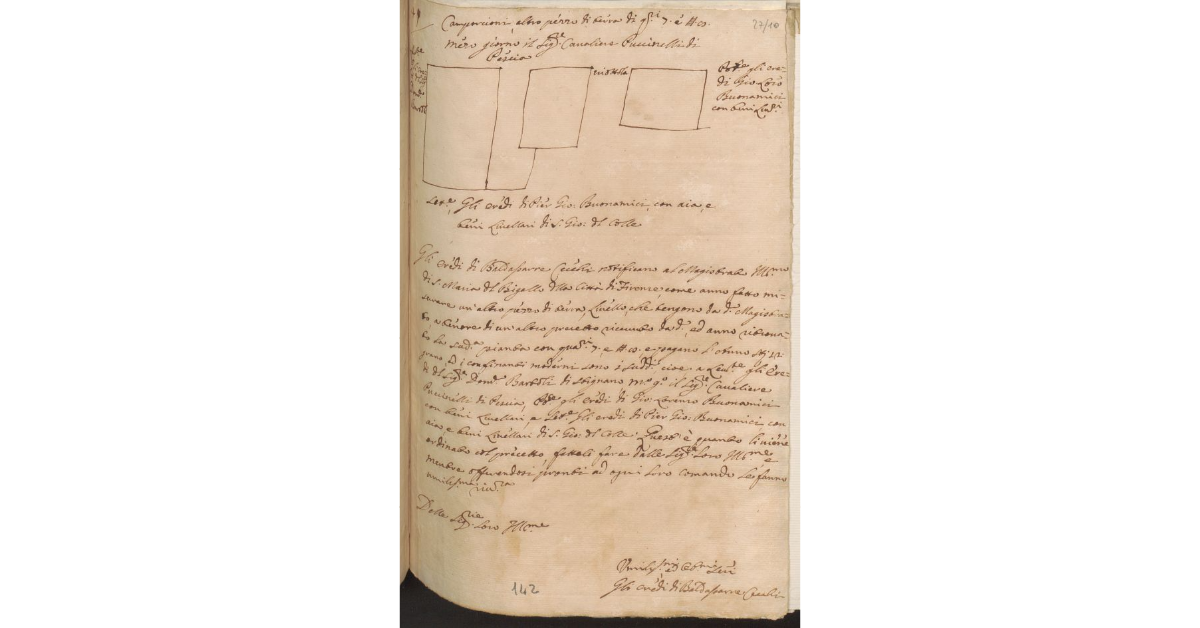 Camporcioni altro pezzo di terra di q.ri 7. e
22/10
mezo giorno il Sig.re Cavaliere Puccinelli di
Pescia
viottola
gli ere-
di Gio: Lor.o
Buonamici
con beni
Gli eredi di Pier Gio: Buonamici, con aia, e
beni livellari di S. Gio: del Colle
Gli eredi di Baldassarre Cecchi notificano al Magistrato Ill.mo
di S. Maria del Bigallo della Città di Firenze come anno fatto mi-
surare un'altro pezzo di terra, livello, che tengono da d.o Magistra-
to a tenore di un'altro precetto ricevuto da d.o, ed anno ritrova-
to la sud.a pianta con e pagano l'Anno
grano, i confinanti moderni sono i sudd.i cioè a gli Ere-
di del Sig.re Dom.o Bartoli di Stignano il Sig.re Cavaliere
Puccinelli di Pescia, gli eredi di Gio: Lorenzo Buonamici
con beni livellari, a Gli eredi di Pier Gio: Buonamici con
aia e beni livellari di S. Gio: del Colle. Questo è quanto li viene
ordinato col precetto fattoli fare dalle Sig.rie Loro Ill.me e
mentre offerendosi pronti ad ogni loro comando le fanno
umilissima riv.za
Delle Sig.rie Loro Ill.me
Umiliss.mi
Gli eredi di Baldassarre Cecchi
142